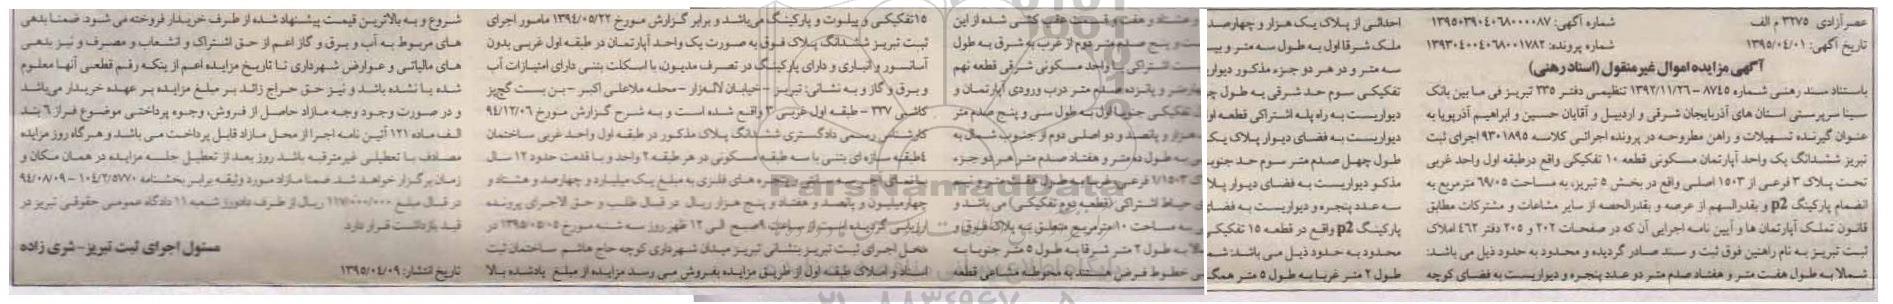 عصر آزادی ۳۲۷۵ م الف
شماره آگهی: ۱۳۹۵۰۳۹۰۴۰۶۸۰۰۰۰۸۷
تاریخ آگهی: ۱۳۹۵/۰۴/۰۱
شماره پرونده: ۱۳۹۳۰۴۰۰۴۰۶۸۰۰۱۷۸۲
آگهی مزایده اموال غیر منقول (اسناد رهنی)
باستناد سند رهنی شماره ۸۷۴۵ - ۱۳۹۲/۱۱/۲۶ تنظیمی دفتر ۳۳۵ تبریز فی مابین بانک
سینا سرپرستی استان های آذربایجان شرقی و اردبیل و آقایان حسین و ابراهیم آذرپویا به
عنوان گیرنده تسهیلات و راهن مطروحه در پرونده اجرائی کلاسه ۹۳۰۱۸۹۵ اجرای ثبت
تبریز ششدانگ یک واحد آپارتمان مسکونی قطعه ۱۰ تفکیکی واقع درطبقه اول واحد غربی
تحت پلاک ۳ فرعی از ۱۵۰۳ اصلی واقع در بخش ۵ تبریز، به مساحت ۶۹/۰۵ مترمربع به
انضمام پارکینگ p2 و بقدرالسهم از عرصه و بقدرالحصه از سایر مشاعات و مشترکات مطابق
قانون تملک آپارتمان ها و آیین نامه اجرایی آن که در صفحات ۲۰۲ و ۲۰۵ دفتر ۴۶۲ املاک
ثبت تبریز به نام راهنین فوق ثبت و سند صادر گردیده و محدود به حدود ذیل می باشد:
شمالا به طول هفت متر و هفتاد صدم متر دو عدد پنجره و دیواریست به فضای کوچه
احداثی از پلاک یک هزار و چهارصد
ملک شرقا اول به طول سه متر و بیـ
سه متر و در هر دو جزء مذکور دیوار
تفکیکی سوم حد شرقی به طول چـ
دیواریست به راه پله اشتراکی قطعه او
دیواریست به فضای دیوار پلاک یکـ
طول چهل صدم متر سوم حد جنوبـ
مذکو دیواریست به فضای دیوار پلا
سه عدد پنجره و دیواریست به فضا
پارکینگ p2 واقع در قطعه ۱۵ تفکیکـ
محدود به حدود ذیل می باشد: شمـ
طول ۲ متر غربا به طول ۵ متر همگـ
و هشتاد و هفت و قسمت عقب کشی شده از این
ست و پنج صدم متر دوم از غرب به شرق به طول
ست اشتراکی با واحد مسکونی شرقی قطعه نهم
چهارمتر و پانزده صدم متر درب ورودی آپارتمان و
تفکیکی جنوبا اول به طول سی و پنج صدم متر
هزار و پانصد و دو اصلی دوم از جنوب شمال به
به طول ده متر و هفتاد صدم متر هر دو جزء
۱/۱۵۰۳ فرعی غربا به طول هفت متر و نیم
حیاط اشتراکی (قطعه دوم تفکیکی) می باشد و
به مساحت ۱۰ مترمربع متعلق به پلاک فوق و
به طول ۲ متر شرقا به طول ۵ متر جنوبا به
خطوط فرضی هستند به محوطه مشاعی قطعه
۱۵ تفکیکی و پیلوت و پارکینگ می باشد و برابر گزارش مورخ ۱۳۹۴/۰۵/۲۲ مامور اجرای
ثبت تبریز ششدانگ پلاک فوق به صورت یک واحد آپارتمان در طبقه اول غربی بدون
آسانسور و انباری و دارای پارکینگ در تصرف مدیون، با اسکلت بتنی دارای امتیازات آب
و برق و گاز و به نشانی: تبریز - خیابان لاله زار - محله ملاعلی اکبر - بن بست گچ پز
کاشی ۳۳۷ - طبقه اول غربی ۳ واقع شده است و به شرح گزارش مورخ ۹۴/۱۲/۰۶
کارشناس رسمی دادگستری ششدانگ پلاک مذکور در طبقه اول واحد غربی ساختمان
۴ طبقه سازه ای بتنی با سه طبقه مسکونی در هر طبقه ۲ واحد و با قدمت حدود ۱۲ سال
پنجره های فلزی به مبلغ یک میلیارد و چهارصد و هشتاد و
چهار میلیون و پانصد و هفتاد و پنج هزار ریال در قبال طلب و حق الاجرای پرونده
ارزیابی گردیده است و از ساعت ۹ صبح الی ۱۲ ظهر روز سه شنبه مورخ ۱۳۹۵/۰۵/۰۵ در
محل اجرای ثبت تبریز بنشانی تبریز میدان شهرداری کوچه حاج هاشم ساختمان ثبت
اسناد و املاک طبقه اول از طریق مزایده بفروش می رسد مزایده از مبلغ یادشده بالا
شروع و به بالاترین قیمت پیشنهاد شده از طرف خریدار فروخته می شود ضمنا بدهی
های مربوط به آب و برق و گاز اعم از حق اشتراک و انشعاب و مصرف و نیز بدهی
های مالیاتی و عوارض شهرداری تا تاریخ مزایده اعم از ینکه رقم قطعی آنها معلوم
شده یا نشده باشد و نیز حق حراج زائد بر مبلغ مزایده بر عهده خریدار می باشد
و در صورت وجود وجه مازاد حاصل از فروش، وجوه پرداختی موضوع فراز ۶ بند
الف ماده ۱۲۱ آئین نامه اجرا از محل مازاد قابل پرداخت می باشد و هرگاه روز مزایده
مصادف با تعطیلی غیرمترقبه باشد روز بعد از تعطیل جلسه مزایده در همان مکان و
زمان برگزار خواهد شد ضمنا مازاد مورد وثیقه برابر بخشنامه ۱۰۴/۲/۵۷۷۰ - ۹۴/۰۸/۰۹
در قبال مبلغ ۱۱۷/۰۰۰/۰۰۰ ریال از طرف دادورز شعبه ۱۱ دادگاه عمومی حقوقی تبریز در
قید بازداشت قرار دارد
مسئول اجرای ثبت تبریز - شری زاده
تاریخ انتشار: ۱۳۹۵/۰۴/۰۹
ParsNamadData